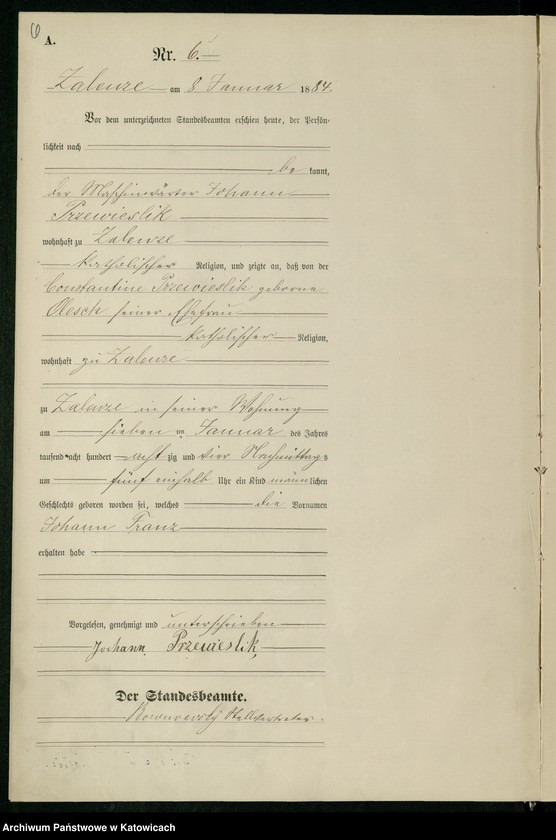 6
A.
Nr. 6.
Zalenze am 8 Januar 1884.
Vor dem unterzeichneten Standesbeamten erschien heute, der Persön-
lichkeit nach
be kannt,
der Maschinwärter Johann
Przewieslik
wohnhaft zu Zalenze
katholischer Religion, und zeigte an, daß von der
Constantine Przewieslik geborne
Olesch seiner Ehefrau
katholischer Religion,
wohnhaft zu Zalenze
zu Zalenze in seiner Wohnung
am sieben ten Januar des Jahres
tausend acht hundert acht zig und vier Nachmittags
um fünf einhalb Uhr ein Kind männlichen
Geschlechts geboren worden sei, welches die Vornamen
Johann Franz
erhalten habe
Vorgelesen, genehmigt und unterschrieben
Johann Przewieslik
Der Standesbeamte.
Stellvertreter.
Archiwum Państwowe w Katowicach